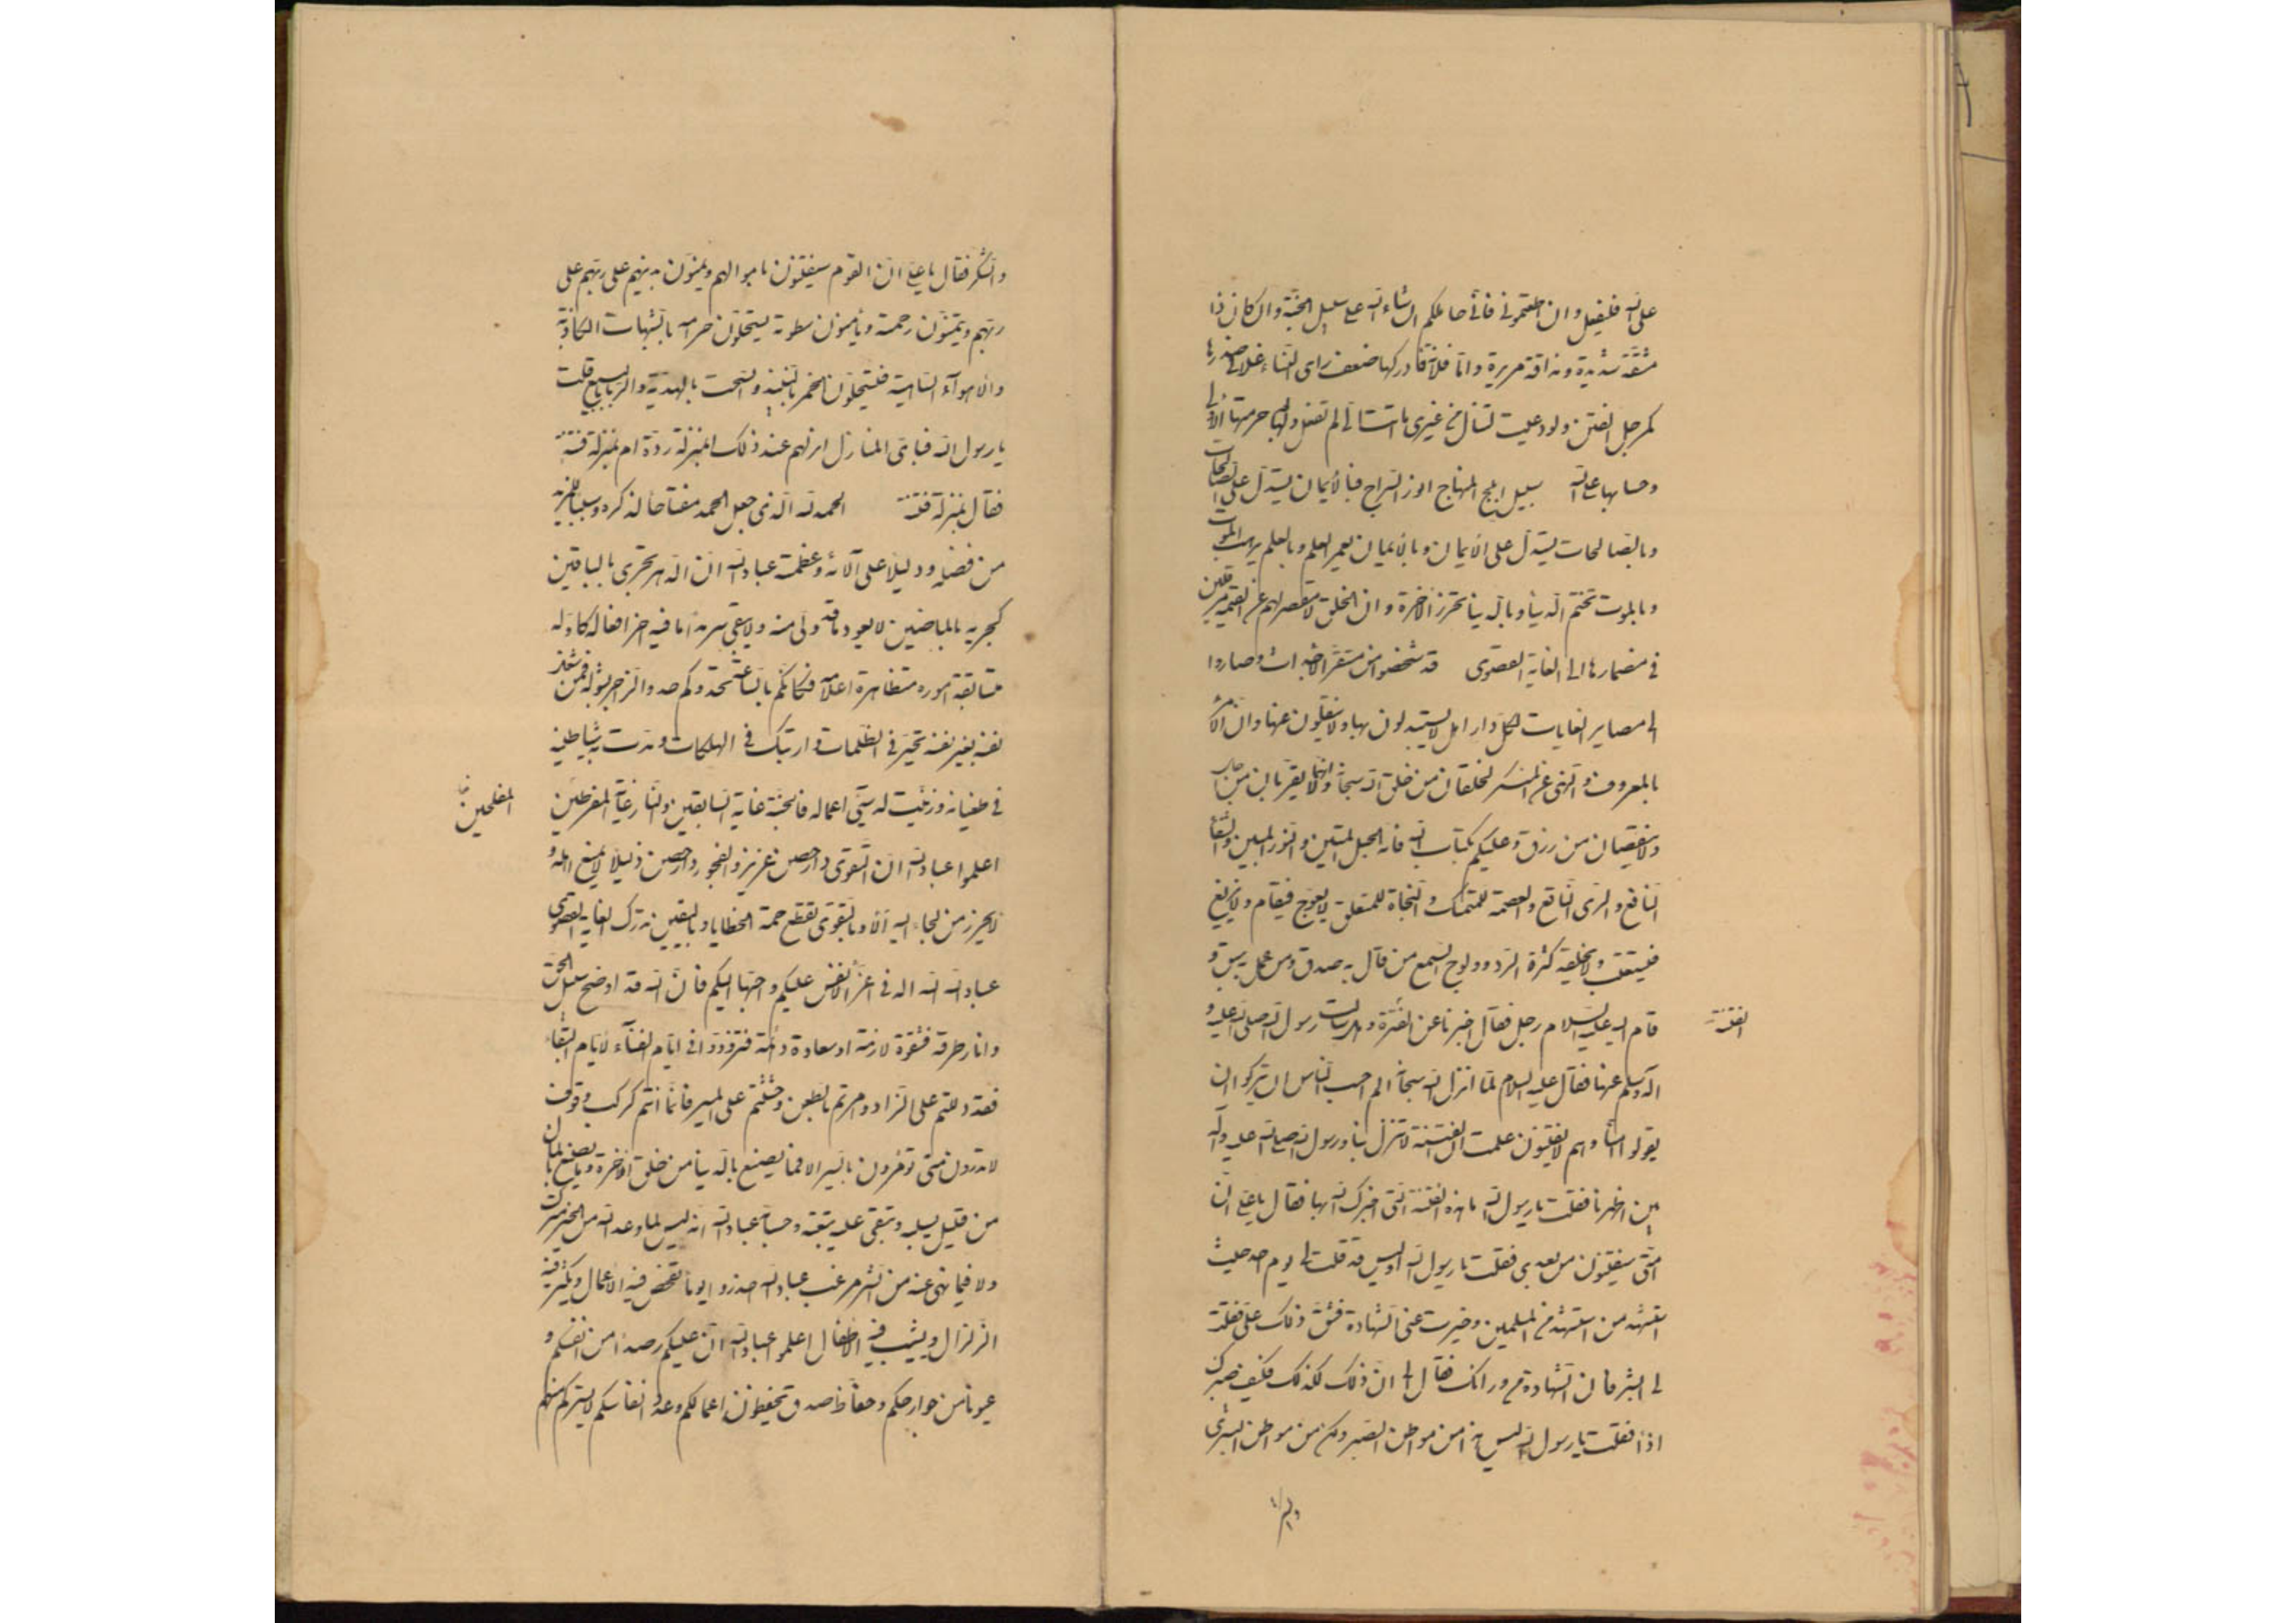 على الله فليفعل وان اطعتموني فاني حاملكم ان شاء الله على سبيل الجنة وان كان ذا
مشقة شديدة ومذاقة مريرة واما فلانة فادركها ضعف راى النساء وضغن غلا في صدرها
كمرجل القين ولو دعيت لتنال من غيرى ما اتت الى لم تفعل ولها بعد حرمتها الاولى
وحسابها على الله سبيل ابلج المنهاج انور السراج فبالايمان يستدل على الصالحات
وبالصالحات يستدل على الايمان وبالايمان يعمر العلم وبالعلم يرهب الموت
وبالموت تختم الدنيا وبالدنيا تحرز الاخرة وان الخلق لا مقصر لهم عن القيمة مرقلين
في مضمارها الى الغاية القصوى قد شخصوا من مستقر الاجداث وصاروا
الى مصاير الغايات لكل دار اهل لا يستبدلون بها ولا ينقلون عنها وان الامر
بالمعروف والنهى عن المنكر لخلقان من خلق الله سبحانه وانهما لا يقربان من اجل
ولا ينقصان من رزق وعليكم بكتاب الله فانه الحبل المتين والنور المبين والشفاء
النافع والرى الناقع والعصمة للمتمسك والنجاة للمتعلق لا يعوج فيقام ولا يزيغ
فيستعتب ولا يخلقه كثرة الرد وولوج السمع من قال به صدق ومن عمل به سبق و
قام اليه عليه السلام رجل فقال اخبرنا عن الفتنة وهل سالت رسول الله صلى الله عليه و
الفتنة
آله وسلم عنها فقال عليه السلام لما انزل الله سبحانه الم احسب الناس ان يتركوا ان
يقولوا آمنا وهم لا يفتنون علمت ان الفتنة لا تنزل بنا ورسول الله صلى الله عليه وآله
بين اظهرنا فقلت يا رسول الله ما هذه الفتنة التى اخبرك الله بها فقال يا على ان
امتى سيفتنون من بعدى فقلت يا رسول الله اوليس قد قلت لى يوم احد حيث
استشهد من استشهد من المسلمين وحيزت عنى الشهادة فشق ذلك على فقلت
لى ابشر فان الشهادة من ورائك فقال لى ان ذلك لكذلك فكيف صبرك
اذا فقلت يا رسول الله ليس هذا من مواطن الصبر ولكن من مواطن البشرى
والشكر
والشكر فقال يا على ان القوم سيفتنون باموالهم ويمنون بدينهم على ربهم على
ربهم ويتمنون رحمته ويأمنون سطوته يستحلون حرامه بالشبهات الكاذبة
والاهوآء الساهية فيستحلون الخمر بالنبيذ والسحت بالهدية والربا بالبيع قلت
يا رسول الله فباى المنازل انزلهم عند ذلك ابمنزلة ردة ام بمنزلة فتنة
فقال بمنزلة فتنة الحمد لله الذى جعل الحمد مفتاحا لذكره وسببا للمزيد
من فضله ودليلا على آلائه وعظمته عباد الله ان الدهر يجرى بالباقين
كجريه بالماضين لا يعود ما قد ولى منه ولا يبقى سرمدا ما فيه اخر افعاله كاوله
متسابقة اموره متظاهرة اعلامه فكانكم بالساعة تحدوكم حدو الزاجر بشوله فمن شغل
نفسه بغير نفسه تحير في الظلمات وارتبك في الهلكات ومدت به شياطينه
في طغيانه وزينت له سيئ اعماله فالجنة غاية السابقين والنار غاية المفرطين
المفلحين
اعلموا عباد الله ان التقوى دار حصن عزيز والفجور دار حصن ذليل لا يمنع اهله و
لا يحرز من لجاء اليه الا وبالتقوى تقطع حمة الخطايا وباليقين تدرك الغاية القصوى
عباد الله الله الله في اعز الانفس عليكم واحبها اليكم فان الله قد اوضح سبيل الحق
وانار طرقه فشقوة لازمة او سعادة دائمة فتزودوا في ايام الفنآء لايام البقاء
فقد دللتم على الزاد وامرتم بالظعن وحثثتم على المسير فانما انتم كركب وقوف
لا تدرون متى تؤمرون بالسير الا فما يصنع بالدنيا من خلق للاخرة وما يصنع بالمال
من قليل يسلبه وتبقى عليه تبعته وحسابه عباد الله انه ليس لما وعد الله من الخير مترك
ولا فيما نهى عنه من الشر مرغب عباد الله احذروا يوما تفحص فيه الاعمال ويكثر فيه
الزلزال ويشيب فيه الاطفال اعلموا عباد الله ان عليكم رصدا من انفسكم و
عيونا من جوارحكم وحفاظ صدق يحفظون اعمالكم وعدد انفاسكم لا يستركم منهم